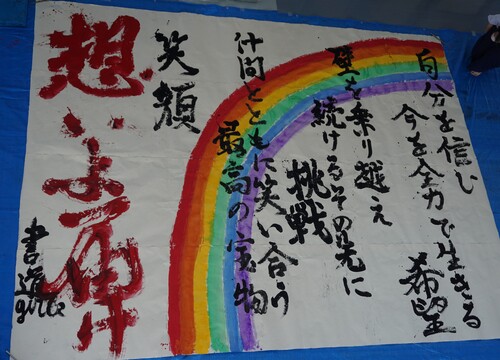 自分を信じ
今を全力で生きる
希望
壁を乗り越え
続けるその先に
挑戦
仲間とともに笑い合う
最高の宝物
笑顔
想いよ届け
書道girls